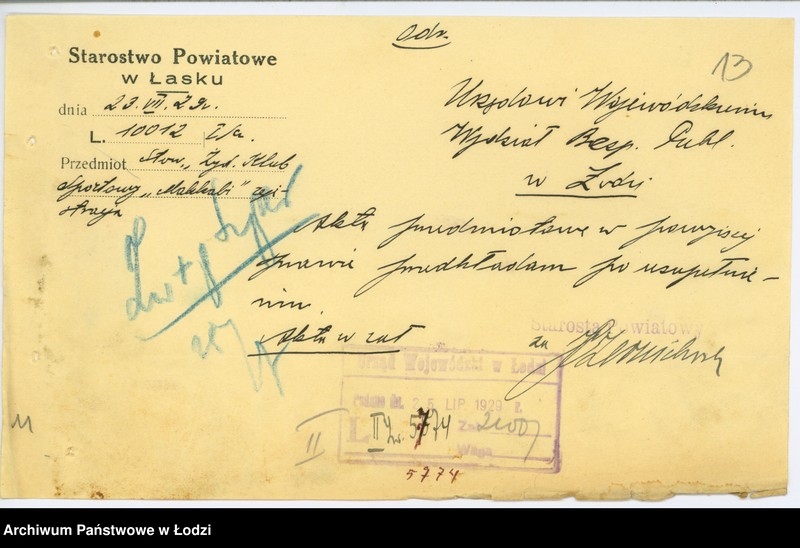 Odr.
13
Starostwo Powiatowe
w Łasku
dnia 23.VII.29r.
L. 10012
Przedmiot Stow. „Żyd. Klub
Sportowy „Makkabi" reje-
stracja
Urzędowi Wojewódzkiemu
Wydział Bezp. Publ.
w Łodzi
Akta przedmiotowe w powyższej
sprawie przedkładam po uzupełnie-
niu.
Akta w zał
Starosta Powiatowy
za
Urząd Wojewódzki w Łodzi
Podano dn. 25 LIP. 1929 r.
L II 5774 Zał.
Waga
II
5774
11
Archiwum Państwowe w Łodzi